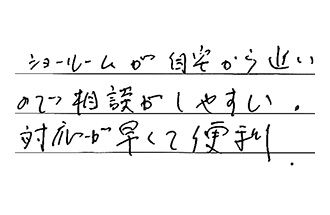 ショールームが自宅から近い
ので相談がしやすい。
対応が早くて便利.